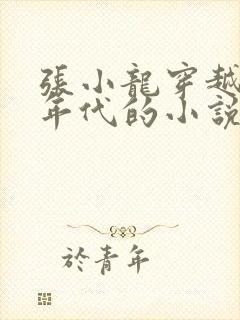 張小龍穿越
年代的小說
於青年